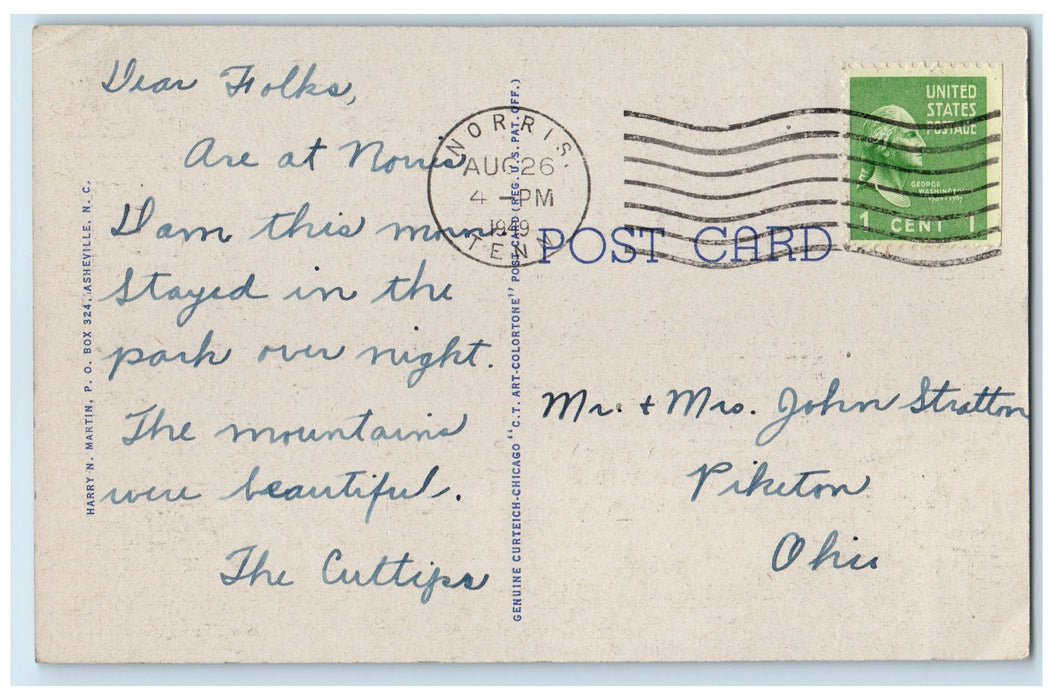 Dear Folks,
Are at Norris
Dam this morn.
Stayed in the
park over night.
The mountains
were beautiful.
The Cuttips
HARRY N. MARTIN, P. O. BOX 324, ASHEVILLE, N. C.
GENUINE CURTEICH-CHICAGO "C.T. ART-COLORTONE" POST CARD (REG. U.S. PAT. OFF.)
NORRIS.
AUG 26
4 - PM
1949
TENN
UNITED
STATES
POSTAGE
GEORGE
WASHINGTON
1 CENT 1
POST CARD
Mr. + Mrs. John Stratton
Piketon
Ohio